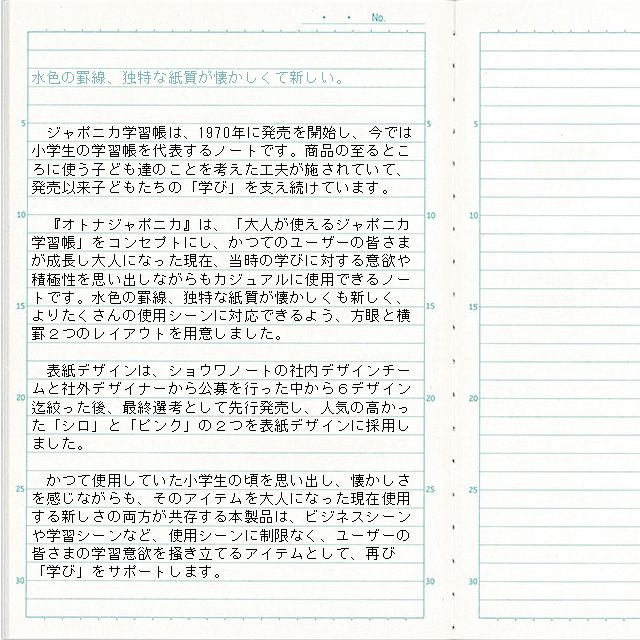 ・ ・ No.
水色の罫線、独特な紙質が懐かしくて新しい。
ジャポニカ学習帳は、1970年に発売を開始し、今では
小学生の学習帳を代表するノートです。商品の至るとこ
ろに使う子ども達のことを考えた工夫が施されていて、
発売以来子どもたちの「学び」を支え続けています。
『オトナジャポニカ』は、「大人が使えるジャポニカ
学習帳」をコンセプトにし、かつてのユーザーの皆さま
が成長し大人になった現在、当時の学びに対する意欲や
積極性を思い出しながらもカジュアルに使用できるノー
トです。水色の罫線、独特な紙質が懐かしくも新しく、
よりたくさんの使用シーンに対応できるよう、方眼と横
罫２つのレイアウトを用意しました。
表紙デザインは、ショウワノートの社内デザインチー
ムと社外デザイナーから公募を行った中から６デザイン
迄絞った後、最終選考として先行発売し、人気の高かっ
た「シロ」と「ピンク」の２つを表紙デザインに採用し
ました。
かつて使用していた小学生の頃を思い出し、懐かしさ
を感じながらも、そのアイテムを大人になった現在使用
する新しさの両方が共存する本製品は、ビジネスシーン
や学習シーンなど、使用シーンに制限なく、ユーザーの
皆さまの学習意欲を掻き立てるアイテムとして、再び
「学び」をサポートします。
5
10
15
20
25
30
5
10
15
20
25
30
5
10
15
20
25
30